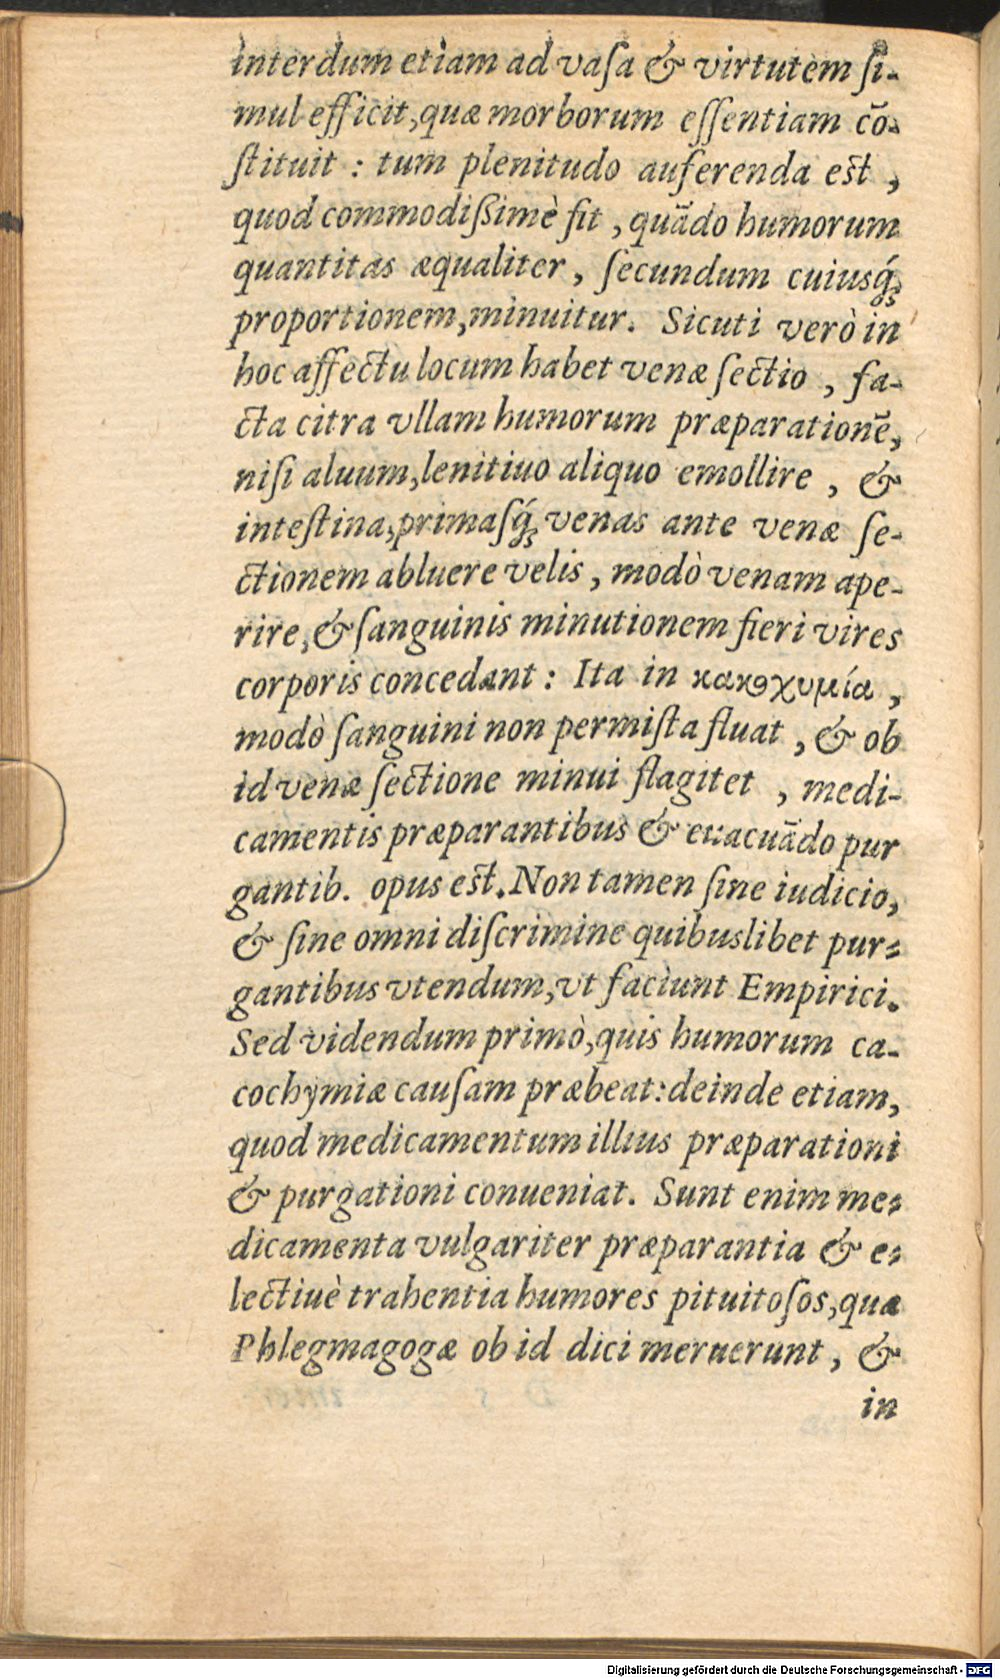 interdum etiam ad vaſa & virtutem ſi-
mul efficit, quæ morborum eſſentiam cō-
ſtituit : tum plenitudo auferenda est ,
quod commodiſsimè fit , quādo humorum
quantitas æqualiter, ſecundum cuiusq́;
proportionem, minuitur. Sicuti verò in
hoc affectu locum habet venæ ſectio , fa-
cta citra vllam humorum præparationē,
niſi aluum, lenitiuo aliquo emollire , &
inteſtina, primaſq́; venas ante venæ ſe-
ctionem abluere velis, modò venam ape-
rire, & ſanguinis minutionem fieri vires
corporis concedant: Ita in κακοχυμία ,
modò ſanguini non permiſta fluat , & ob
id venæ ſectione minui flagitet , medi-
camentis præparantibus & euacuādo pur
gantib. opus est. Non tamen ſine iudicio,
& ſine omni diſcrimine quibuslibet pur-
gantibus vtendum, vt faciunt Empirici.
Sed videndum primò, quis humorum ca-
cochymiæ cauſam præbeat: deinde etiam,
quod medicamentum illius præparationi
& purgationi conueniat. Sunt enim me-
dicamenta vulgariter præparantia & e-
lectiuè trahentia humores pituitoſos, quæ
Phlegmagogæ ob id dici meruerunt, &
in
Digitalisierung gefördert durch die Deutsche Forschungsgemeinschaft - DFG